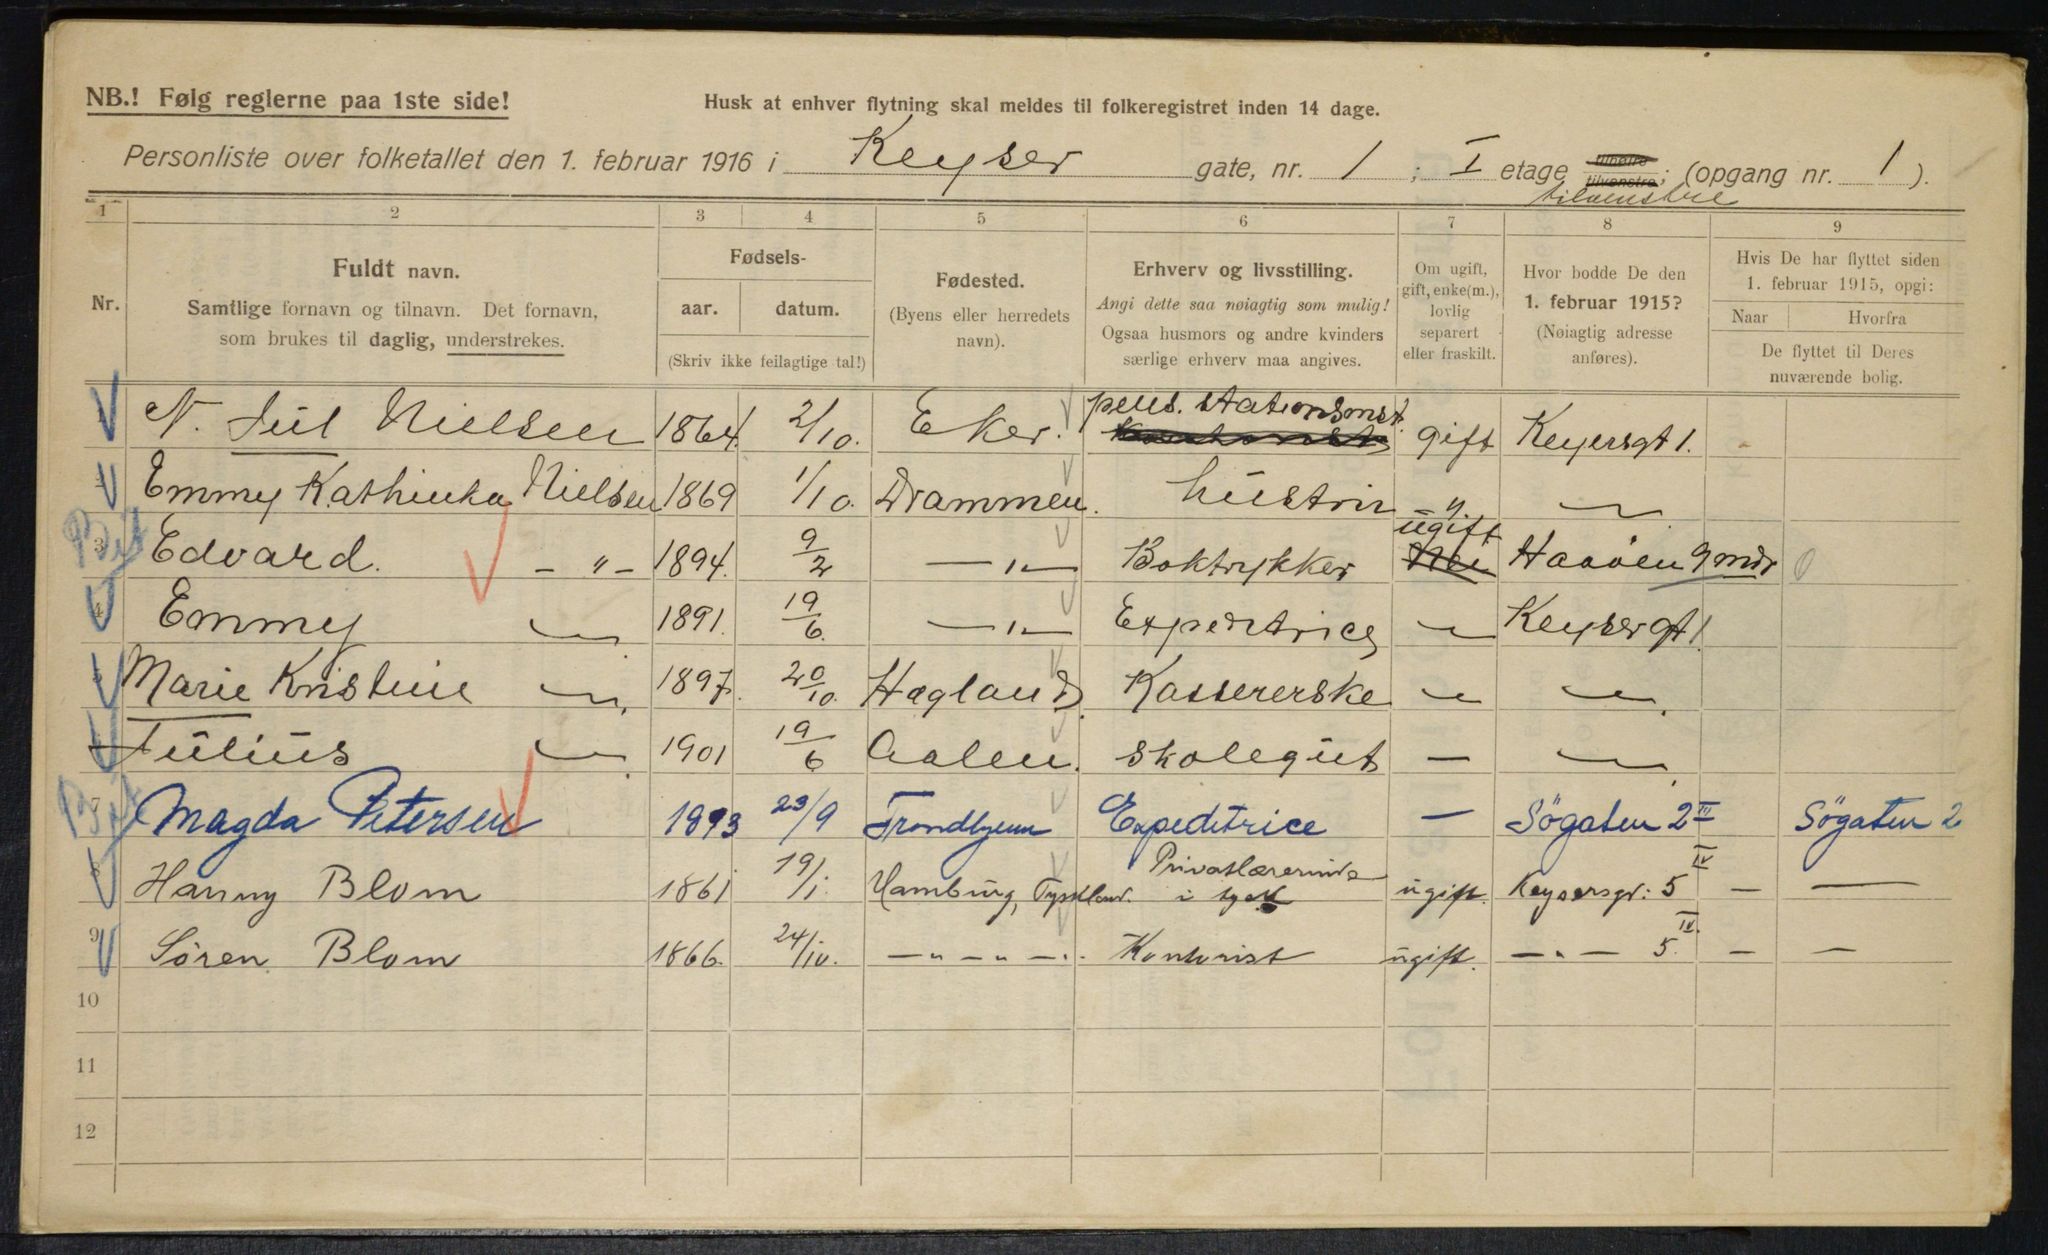 NB.! Følg reglerne paa 1ste side!
Husk at enhver flytning skal meldes til folkeregistret inden 14 dage.
Personliste over folketallet den 1. februar 1916 i Keyser gate, nr. 1 ; I etage tilhøire tilvenstre; (opgang nr. 1 ).
tilvenstre
1 2 3 4 5 6 7 8 9
Nr.
Fuldt navn.
Samtlige fornavn og tilnavn. Det fornavn,
som brukes til daglig, understrekes.
Fødsels-
aar. datum.
(Skriv ikke feilagtige tal!)
Fødested.
(Byens eller herredets
navn).
Erhverv og livsstilling.
Angi dette saa nøiagtig som mulig!
Ogsaa husmors og andre kvinders
særlige erhverv maa angives.
Om ugift,
gift, enke(m.),
lovlig
separert
eller fraskilt.
Hvor bodde De den
1. februar 1915?
(Nøiagtig adresse
anføres).
Hvis De har flyttet siden
1. februar 1915, opgi:
Naar Hvorfra
De flyttet til Deres
nuværende bolig.
N. Jul Nielsen 1864. 2/10. Eker. pens. stationsmst. gift Keyersgt 1. -
Emmy Kathinka Nielsen 1869 1/10. Drammen. hustru " —
3 Edvard. - " - 1894. 9/2 — " — Boktrykker ugift Nei 9 mdr
4 Emmy — 1891. 19/6. — " — Expeditrice — Keysergt 1.
Marie Kristine — 1897. 20/10. Hægland. Kassererske — —
Julius — 1901 19/6 Aalen. skolegut — —
7 Magda Petersen 1893 23/9 Trondhjem Expeditrice — Søgaten 2 III Søgaten 2
8 Hanny Blom 1861 19/1. Hamburg, Tyskland. Privatlærerinde i tysk ugift. Keysersgt: 5 IV — —
9 Søren Blom 1866. 24/10. — " — " — " Kontorist ugift. — " — 5. IV. — —
10
11
12